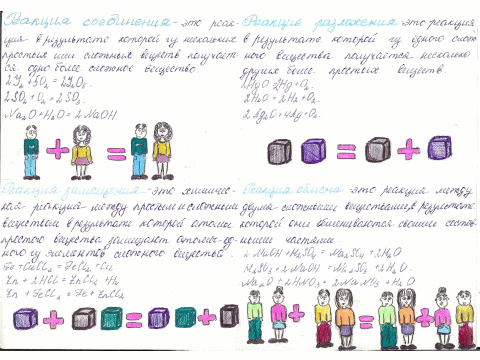 Реакция соединения - это реак-
ция в результате которой из нескольких
простых или сложных веществ получает-
ся одно более сложное вещество.
2SO₂ + O₂ = 2SO₃
Na₂O + H₂O = 2NaOH
Реакция разложения это реакция
в результате которой из одного слож-
ного вещества получается несколько
других более простых веществ.
2HgO = 2Hg + O₂
2H₂O = 2H₂ + O₂
2Ag₂O = 4Ag + O₂
Реакция замещения - это химичес-
кая реакция между простым и сложным
веществом в результате которой атомы
простого вещества замещают атомы од-
ного из элементов сложного вещества.
Fe + CuCl₂ = FeCl₂ + Cu
Zn + 2HCl = ZnCl₂ + H₂
Zn + FeCl₂ = Fe + ZnCl₂
Реакция обмена это реакция между
двумя сложными веществами, в результате
которой они обмениваются своими состав-
ными частями
2NaOH + H₂SO₄ = Na₂SO₄ + 2H₂O